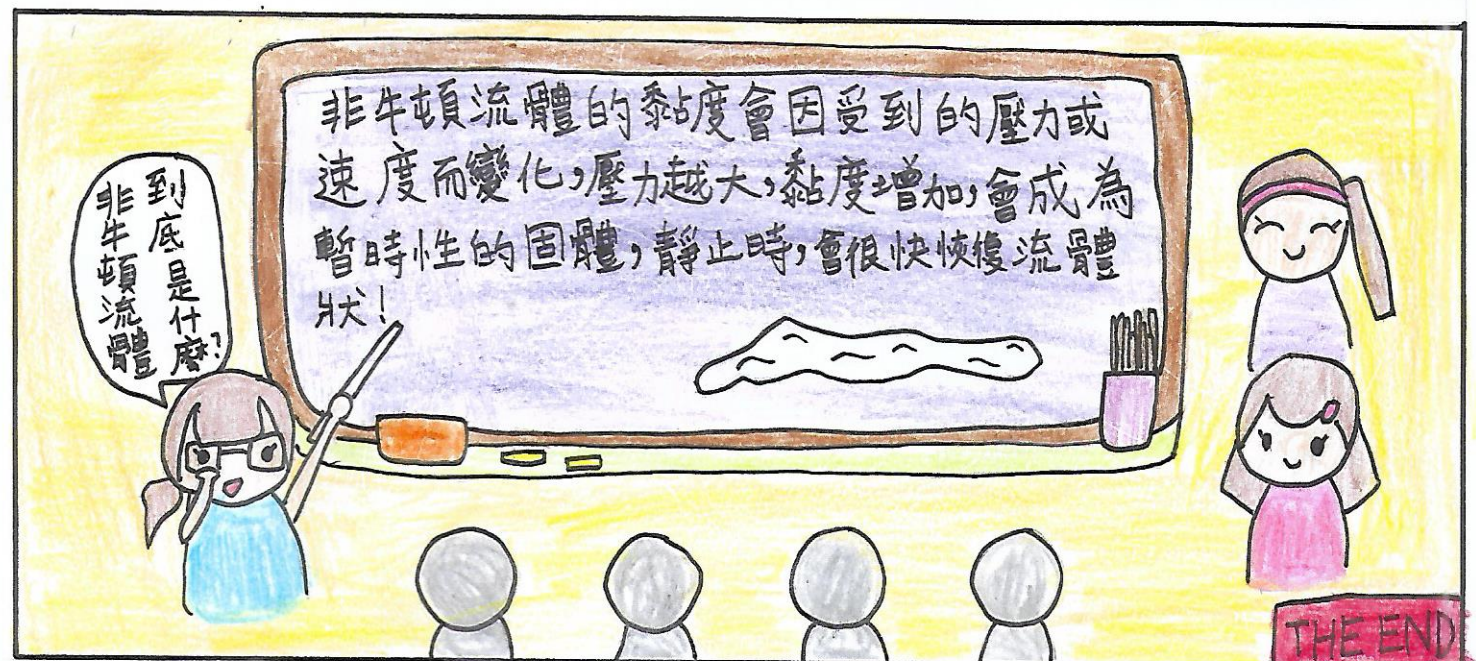 到底是什麼?
非牛頓流體
非牛頓流體的黏度會因受到的壓力或
速度而變化,壓力越大,黏度增加,會成為
暫時性的固體,靜止時,會很快恢復流體
狀!
THE END